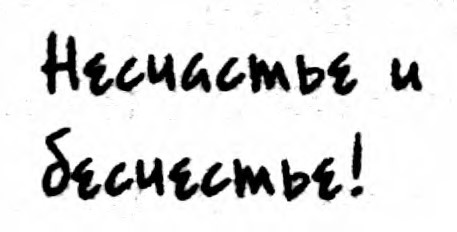 Несчастье и
бесчестье!